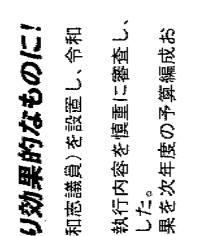 り効果的なものに!
和志議員)を設置し、令和
執行内容を慎重に審査し、
した。
果を次年度の予算編成お